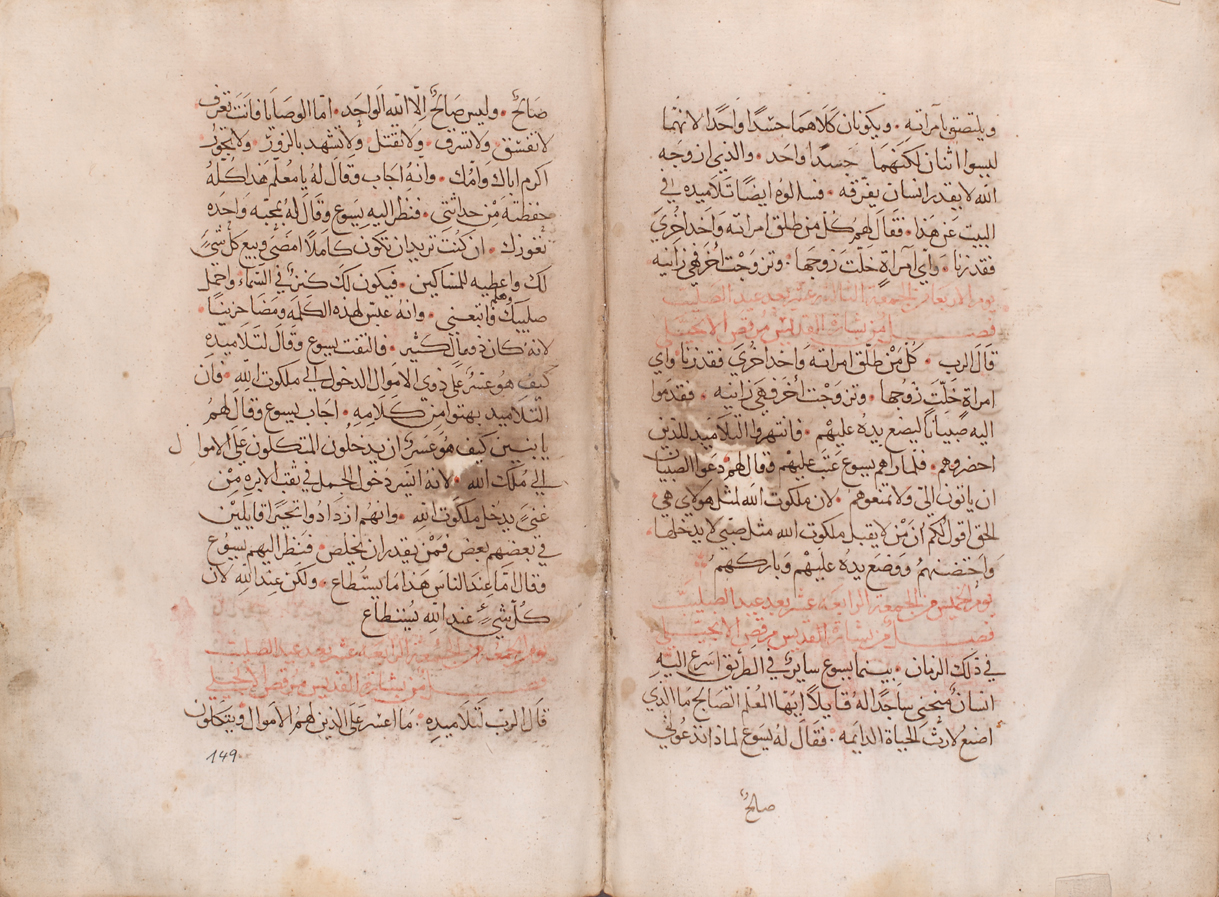 ويلتصق بامرآته • ويكونان كلاهما جسدًا واحدًا لانهما
ليسوا اثنان لكنهما جسدًا واحد • والذي ازوجه
الله لا يقدر انسان يفرقه • فسالوه ايضًا تلاميذه في
البيت عن هذا • فقال لهم كل من طلق امراته واخد اخري
فقد زنا • واي امراة خلت زوجها • وتزوجت اخر فهي زانيه
يوم الاربعا من الجمعه الثالثه عشر بعد عيد الصليب
فصل من بشارة القديس مرقص الانجيلي
قال الرب • كل من طلق امراته واخد اخري فقد زنا واي
امراة خلت زوجها • وتزوجت اخر فهي زانيه • فقدموا
اليه صبيانًا ليضع يده عليهم • فانتهروا التلاميد للذين
احضروهم • فلما راهم يسوع غضب عليهم وقال لهم دعوا الصبيان
ان ياتون الي ولا تمنعوهم • لان ملكوت الله لمثل هولاي هي •
الحق اقول لكم ان من لا يقبل ملكوت الله مثل صبي لا يدخلها •
واحتضنهم ووضع يده عليهم وباركهم
يوم الخميس من الجمعه الرابعه عشر بعد عيد الصليب
فصل من بشارة القديس مرقص الانجيلي
في ذلك الزمان • بينما يسوع ساير في الطريق اسرع اليه
انسان منحني ساجدًا له قايلًا ايها المعلم الصالح ما الذي
اصنع لارث الحياة الدايمه • فقال له يسوع لماذا تدعوني
صالح
صالح • وليس صالح الا الله الواحد • اما الوصايا فانت تعرف
لا تفسق • ولا تسرق • ولا تقتل • ولا تشهد بالزور • ولا تجوز
اكرم اباك وامك • وانه اجاب وقال له يا معلم هذا كله
حفظته من حداثتي • فنظر اليه يسوع وقال له بمحبه واحده
تعوزك • ان كنت تريد ان تكون كاملًا امضي وبيع كل شيء
لك واعطيه للمساكين • فيكون لك كنز في السماء واحمل
صليبك واتبعني • وانه عبس لهذه الكلمه ومضا حزينًا •
لانه كان ذو مال كثير • فالتفت يسوع وقال لتلاميذه
كيف هو عسر علي ذوي الاموال الدخول الي ملكوت الله • فان
التلاميد بهتوا من كلامه • اجاب يسوع وقال لهم
يا بنين كيف هو عسر ان يدخلون المتكلون علي الاموال
الي ملكت الله • لانه ايسر دخول الجمل في ثقب الابره من
غني يدخل ملكوت الله • وانهم ازدادوا تحيرًا قايلين
في بعضهم بعض فمن يقدر ان يخلص • فنظر اليهم يسوع
وقال اما عند الناس هذا ما يستطاع • ولكن عند الله لان
كل شيء عند الله يستطاع
يوم الجمعه من الجمعه الرابعه عشر بعد عيد الصليب
فصل من بشارة القديس مرقص الانجيلي
قال الرب لتلاميذه • ما اعسر علي الذين لهم الاموال ويتكلون
149